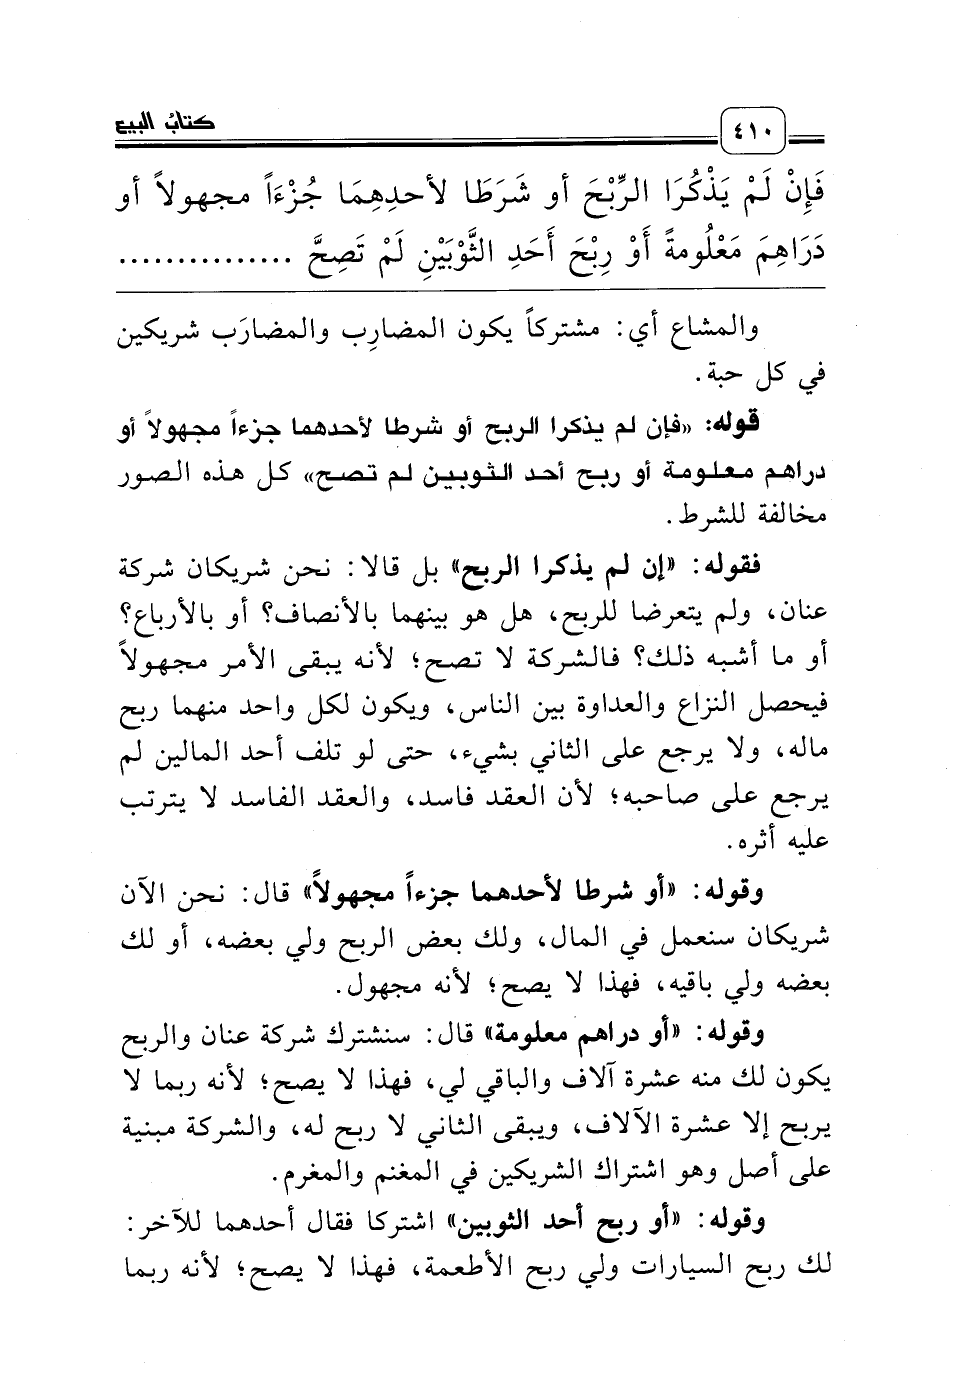 كتابُ البيع
٤١٠
فَإِنْ لَمْ يَذْكُرَا الرِّبْحَ أو شَرَطَا لأحدِهِمَا جُزْءَاً مجهولاً أو
دَرَاهِمَ مَعْلُومةً أَوْ رِبْحَ أَحَدِ الثَّوْبَيْنِ لَمْ تَصِحَّ ...............
والمشاع أي: مشتركاً يكون المضارِب والمضارَب شريكين
في كل حبة.
قوله: «فإن لم يذكرا الربح أو شرطا لأحدهما جزءاً مجهولاً أو
دراهم معلومة أو ربح أحد الثوبين لم تصح» كل هذه الصور
مخالفة للشرط.
فقوله: «إن لم يذكرا الربح» بل قالا: نحن شريكان شركة
عنان، ولم يتعرضا للربح، هل هو بينهما بالأنصاف؟ أو بالأرباع؟
أو ما أشبه ذلك؟ فالشركة لا تصح؛ لأنه يبقى الأمر مجهولاً
فيحصل النزاع والعداوة بين الناس، ويكون لكل واحد منهما ربح
ماله، ولا يرجع على الثاني بشيء، حتى لو تلف أحد المالين لم
يرجع على صاحبه؛ لأن العقد فاسد، والعقد الفاسد لا يترتب
عليه أثره.
وقوله: «أو شرطا لأحدهما جزءاً مجهولاً» قال: نحن الآن
شريكان سنعمل في المال، ولك بعض الربح ولي بعضه، أو لك
بعضه ولي باقيه، فهذا لا يصح؛ لأنه مجهول.
وقوله: «أو دراهم معلومة» قال: سنشترك شركة عنان والربح
يكون لك منه عشرة آلاف والباقي لي، فهذا لا يصح؛ لأنه ربما لا
يربح إلا عشرة الآلاف، ويبقى الثاني لا ربح له، والشركة مبنية
على أصل وهو اشتراك الشريكين في المغنم والمغرم.
وقوله: «أو ربح أحد الثوبين» اشتركا فقال أحدهما للآخر:
لك ربح السيارات ولي ربح الأطعمة، فهذا لا يصح؛ لأنه ربما